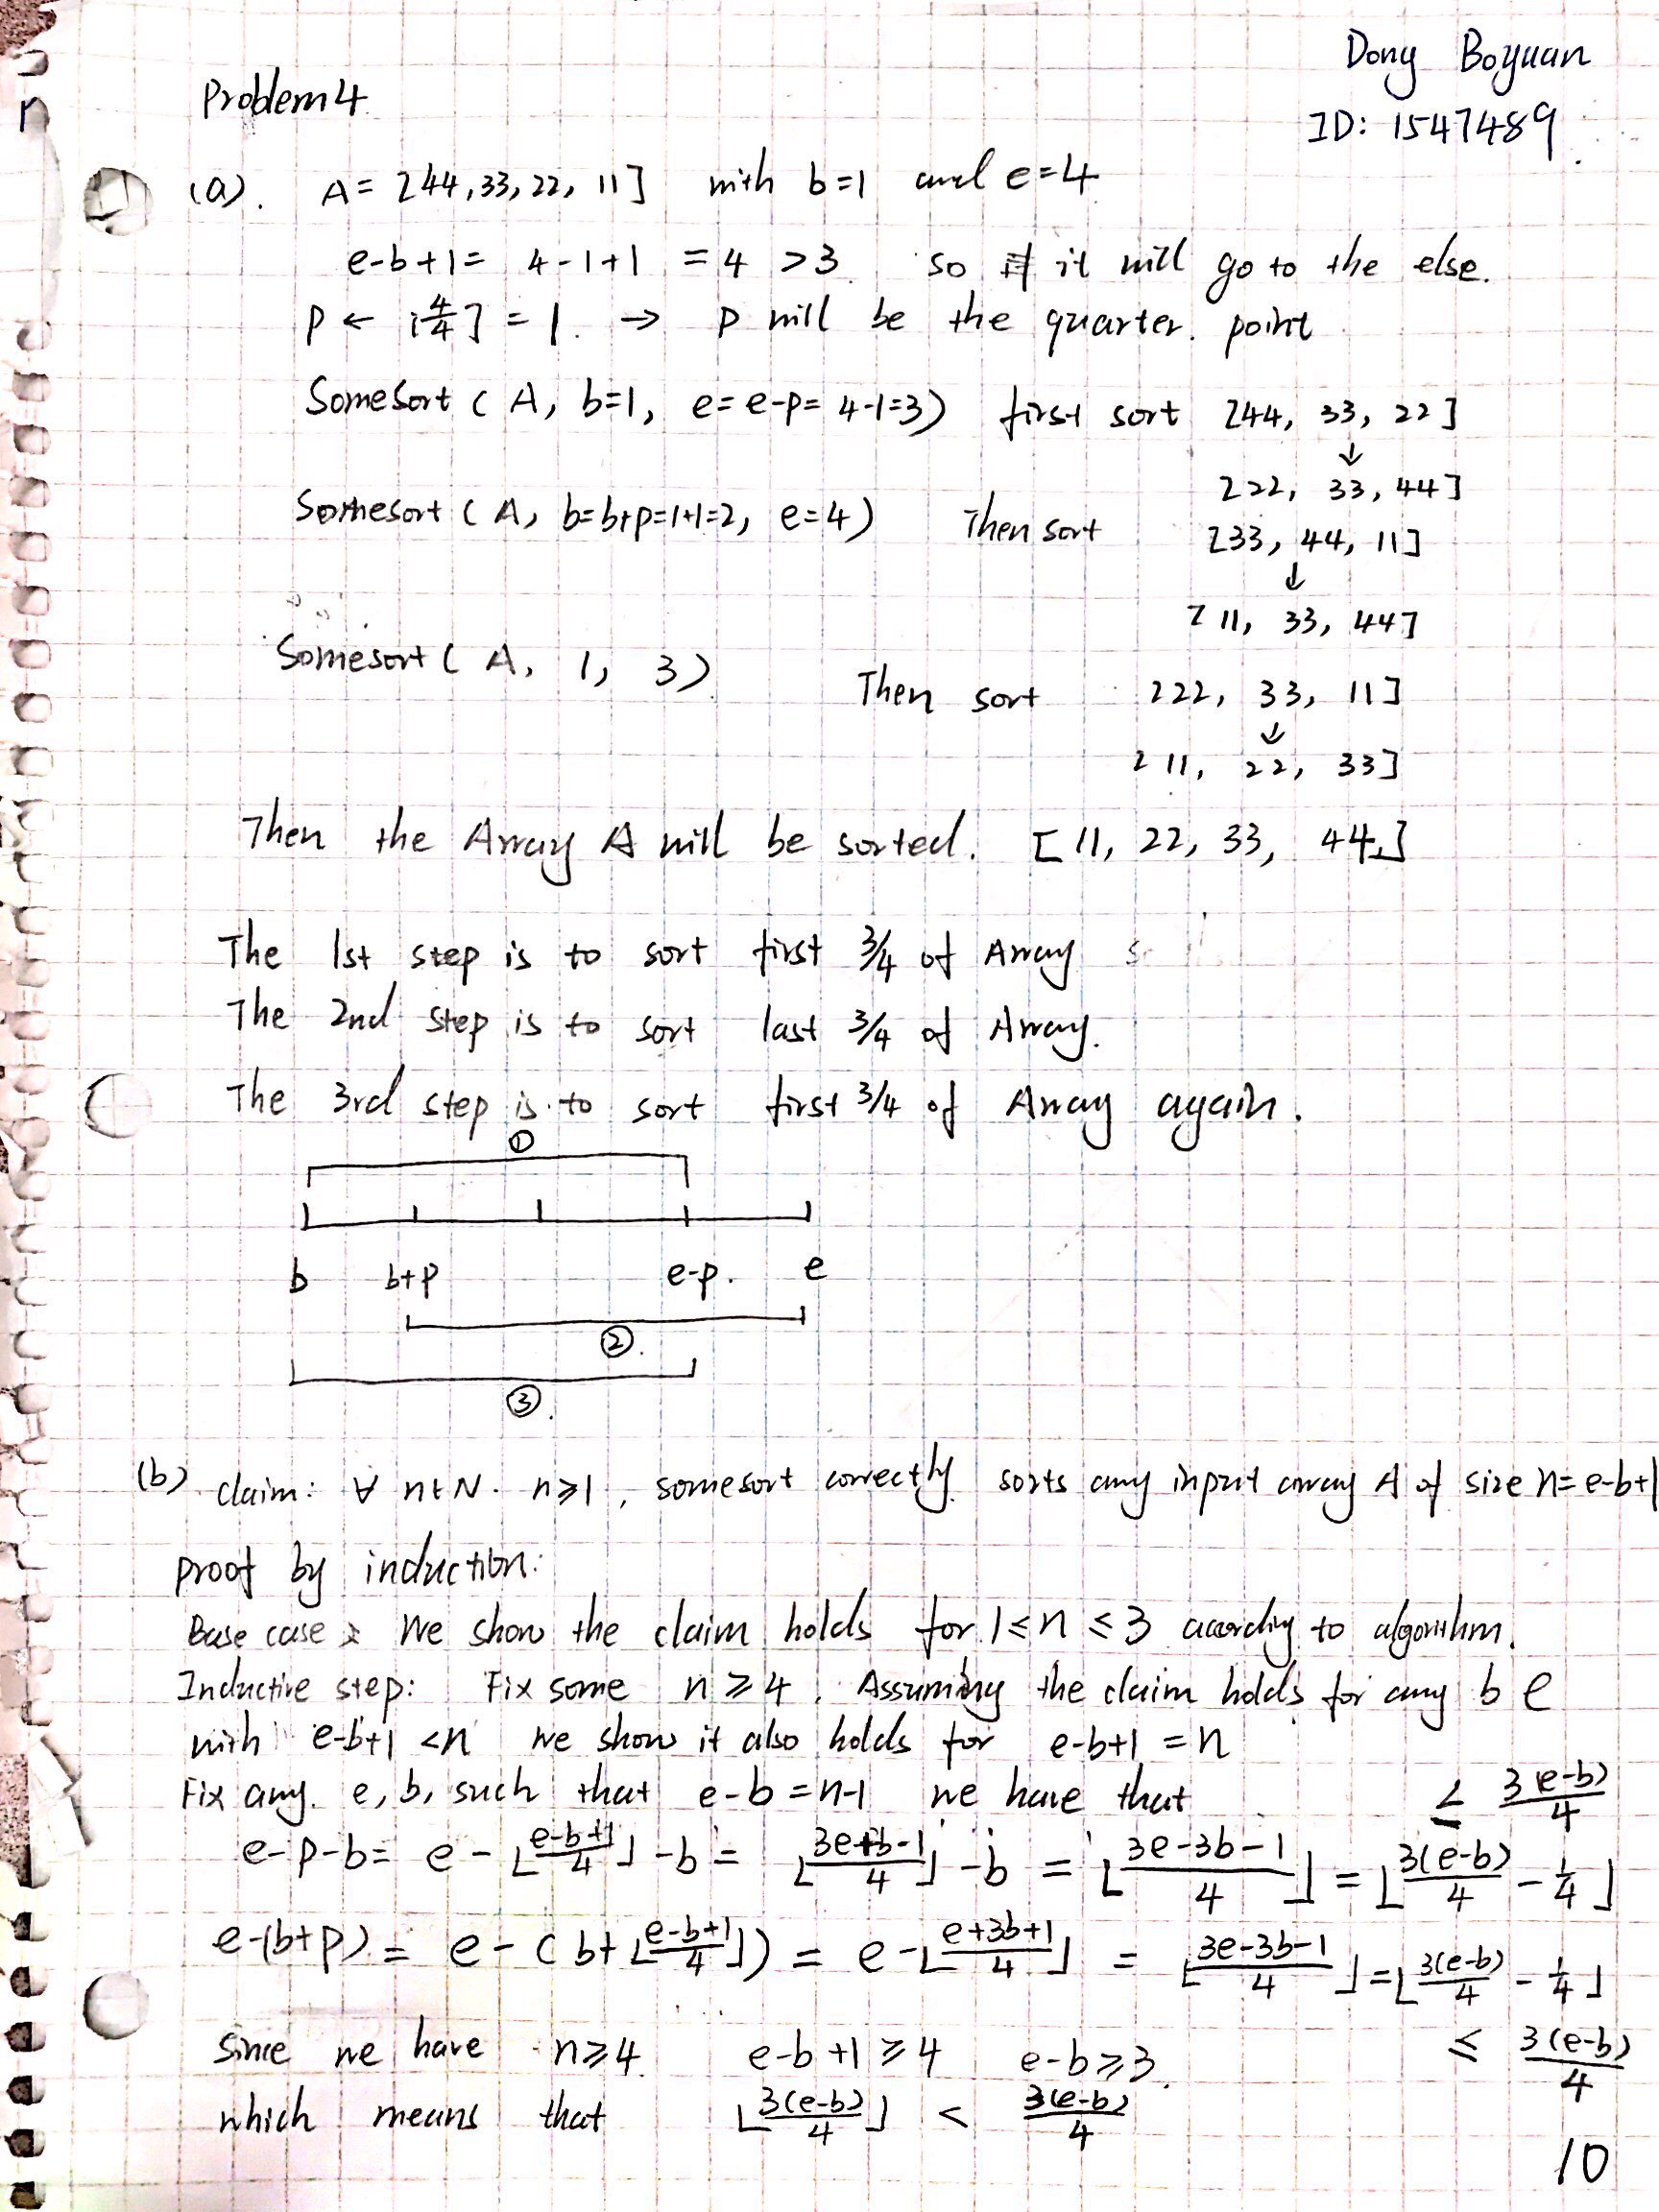 Dong Boyuan
Problem 4
ID: 1547489
(a). A = [44, 33, 22, 11] with b=1 and e=4
e-b+1 = 4-1+1 = 4 > 3 so it will go to the else.
P ← ⌊4/4⌋ = 1. → P will be the quarter point
Somesort (A, b=1, e=e-p=4-1=3) first sort [44, 33, 22]
↓
[22, 33, 44]
Somesort (A, b=b+p=1+1=2, e=4) Then sort [33, 44, 11]
↓
[11, 33, 44]
Somesort (A, 1, 3) Then sort [22, 33, 11]
↓
[11, 22, 33]
Then the Array A will be sorted. [11, 22, 33, 44]
The 1st step is to sort first 3/4 of Array
The 2nd step is to sort last 3/4 of Array.
The 3rd step is to sort first 3/4 of Array again.
①
b b+p e-p. e
②.
③.
(b) claim: ∀ n∈N. n≥1, somesort correctly sorts any input array A of size n=e-b+1
Proof by induction:
Base case: We show the claim holds for 1≤n≤3 according to algorithm.
Inductive step: Fix some n≥4. Assuming the claim holds for any b e
with e-b+1 <n we show it also holds for e-b+1 = n
Fix any. e, b, such that e-b = n-1 we have that ≤ 3(e-b)/4
e-p-b = e - ⌊(e-b+1)/4⌋ - b = ⌊(3e+b-1)/4⌋ - b = ⌊(3e-3b-1)/4⌋ = ⌊3(e-b)/4 - 1/4⌋
e-(b+p) = e - (b+⌊(e-b+1)/4⌋) = e - ⌊(e+3b+1)/4⌋ = ⌊(3e-3b-1)/4⌋ = ⌊3(e-b)/4 - 1/4⌋
since we have n≥4 e-b+1≥4 e-b≥3. ≤ 3(e-b)/4
which means that ⌊3(e-b)/4⌋ < 3(e-b)/4
10